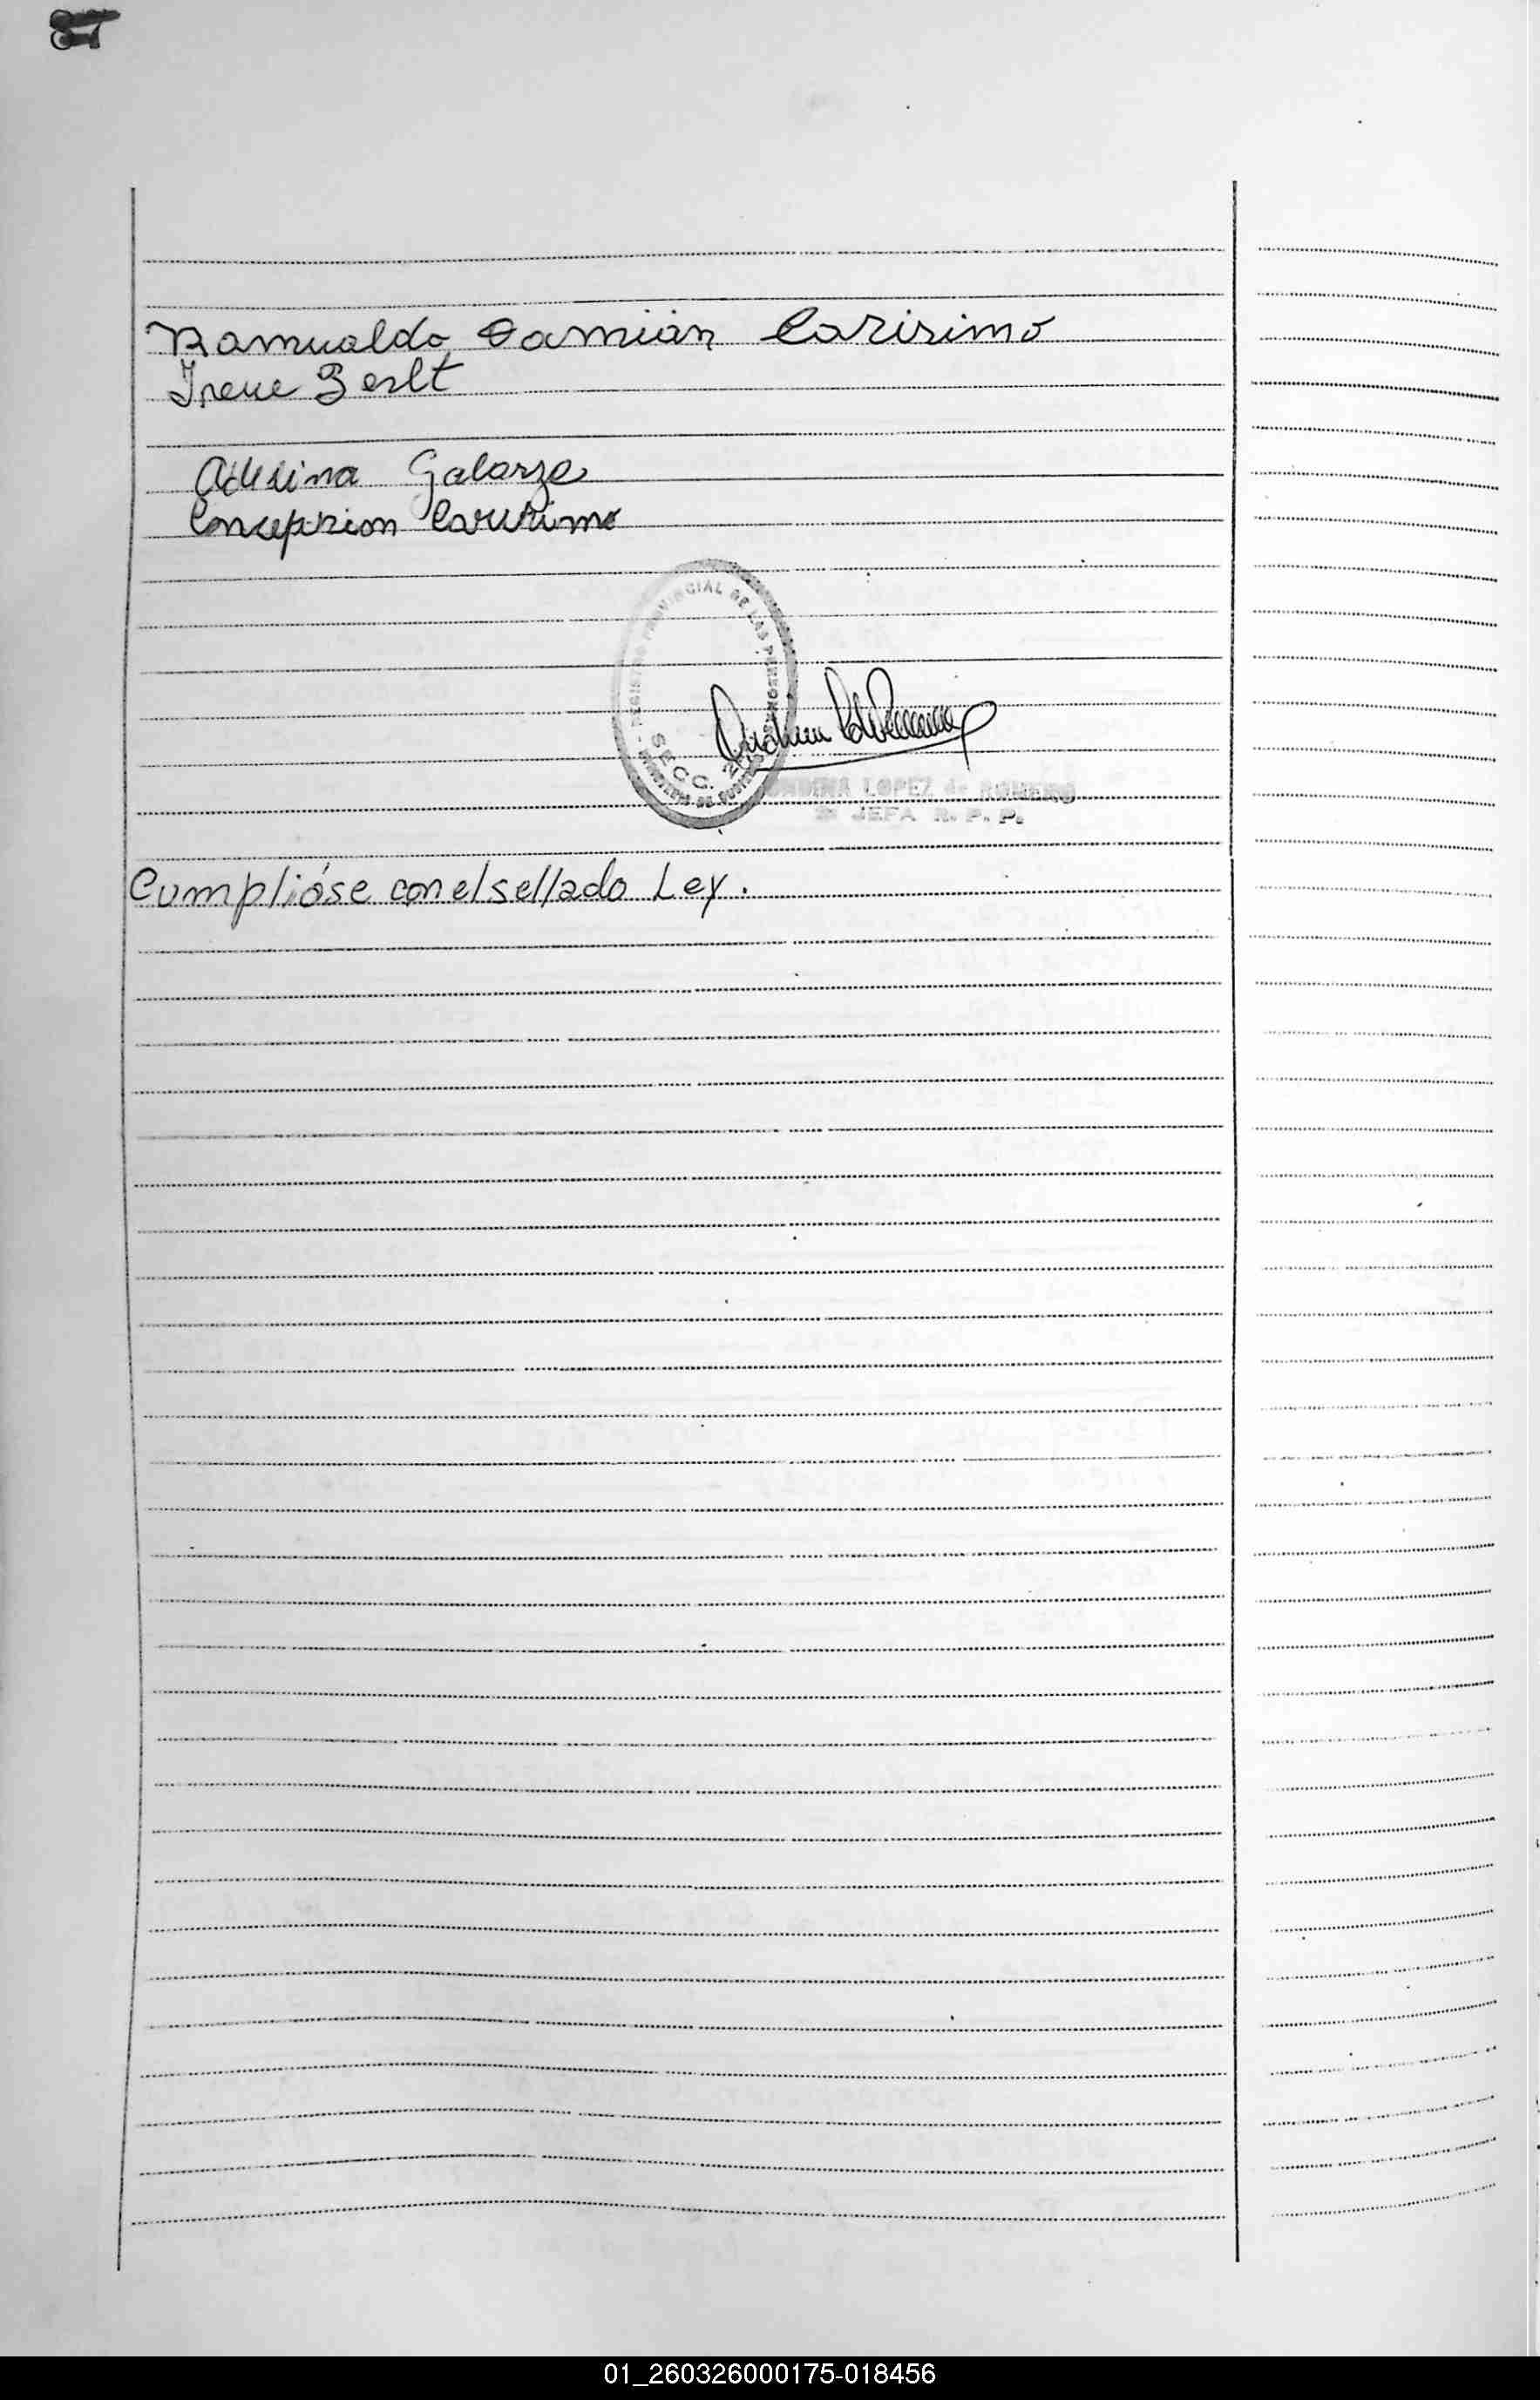 Ramualdo Damián Carisimo
Irene Gerlt
Adelina Galarza
Concepcion Carisimo
REGISTRO PROVINCIAL DE LAS PERSONAS
SECC. 2ª
ONDINA LOPEZ de ROMERO
JEFA R. P. P.
Cumplióse con el sellado Ley.
01_260326000175-018456